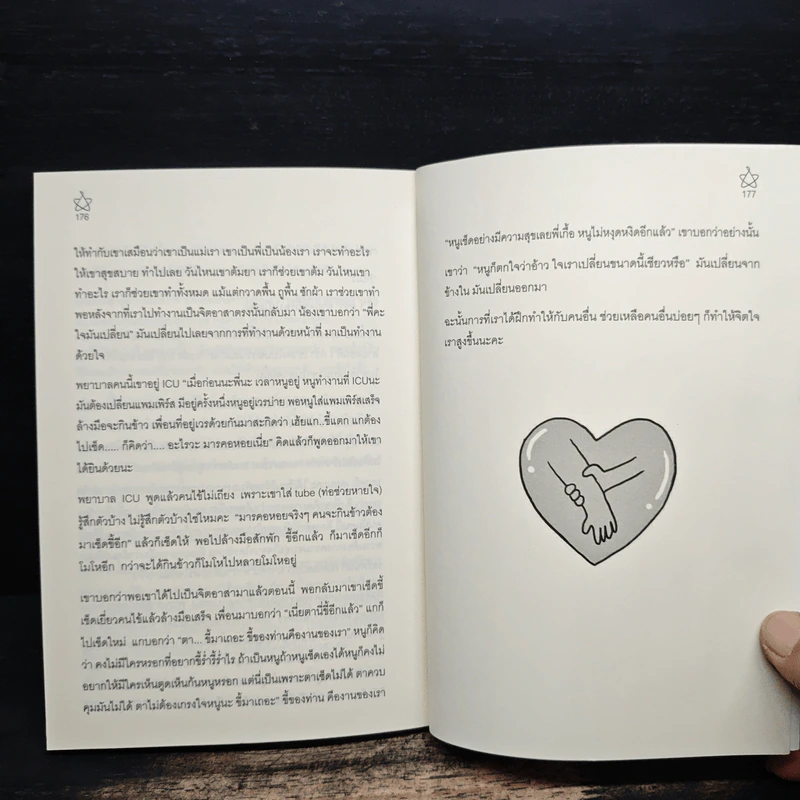 176
ให้ทำกับเขาเสมือนว่าเขาเป็นแม่เรา เขาเป็นพี่เป็นน้องเรา เราจะทำอะไร
ให้เขาสุขสบาย ทำไปเลย วันไหนเขาต้มยา เราก็ช่วยเขาต้ม วันไหนเขา
ทำอะไร เราก็ช่วยเขาทำทั้งหมด แม้แต่กวาดพื้น ถูพื้น ซักผ้า เราช่วยเขาทำ
พอหลังจากที่เราไปทำงานเป็นจิตอาสาตรงนั้นกลับมา น้องเขาบอกว่า "พี่คะ
ใจมันเปลี่ยน" มันเปลี่ยนไปเลยจากการที่ทำงานด้วยหน้าที่ มาเป็นทำงาน
ด้วยใจ
พยาบาลคนนี้เขาอยู่ ICU "เมื่อก่อนนะพี่นะ เวลาหนูอยู่ หนูทำงานที่ ICUนะ
มันต้องเปลี่ยนแพมเพิร์ส มีอยู่ครั้งหนึ่งหนูอยู่เวรบ่าย พอหนูใส่แพมเพิร์สเสร็จ
ล้างมือจะกินข้าว เพื่อนที่อยู่เวรด้วยกันมาสะกิดว่า เฮ้ยแก..ขี้แตก แกต้อง
ไปเช็ด..... ก็คิดว่า.... อะไรวะ มารคอหอยเนี่ย" คิดแล้วก็พูดออกมาให้เขา
ได้ยินด้วยนะ
พยาบาล ICU พูดแล้วคนไข้ไม่เถียง เพราะเขาใส่ tube (ท่อช่วยหายใจ)
รู้สึกตัวบ้าง ไม่รู้สึกตัวบ้างใช่ไหมคะ "มารคอหอยจริงๆ คนจะกินข้าวต้อง
มาเช็ดขี้อีก" แล้วก็เช็ดให้ พอไปล้างมือสักพัก ขี้อีกแล้ว ก็มาเช็ดอีกก็
โมโหอีก กว่าจะได้กินข้าวก็โมโหไปหลายโมโหอยู่
เขาบอกว่าพอเขาได้ไปเป็นจิตอาสามาแล้วตอนนี้ พอกลับมาเขาเช็ดขี้
เช็ดเยี่ยวคนไข้แล้วล้างมือเสร็จ เพื่อนมาบอกว่า "เนี่ยตานี่ขี้อีกแล้ว" แกก็
ไปเช็ดใหม่ แกบอกว่า "ตา... ขี้มาเถอะ ขี้ของท่านคืองานของเรา" หนูก็คิด
ว่า คงไม่มีใครหรอกที่อยากขี้ร่ำขี้ร่ำไร ถ้าเป็นหนูถ้าหนูเช็ดเองได้หนูก็คงไม่
อยากให้มีใครเห็นตูดเห็นก้นหนูหรอก แต่นี่เป็นเพราะตาเช็ดไม่ได้ ตาควบ
คุมมันไม่ได้ ตาไม่ต้องเกรงใจหนูนะ ขี้มาเถอะ" ขี้ของท่าน คืองานของเรา
177
"หนูเช็ดอย่างมีความสุขเลยพี่เกื้อ หนูไม่หงุดหงิดอีกแล้ว" เขาบอกว่าอย่างนั้น
เขาว่า "หนูก็ตกใจว่าอ้าว ใจเราเปลี่ยนขนาดนี้เชียวหรือ" มันเปลี่ยนจาก
ข้างใน มันเปลี่ยนออกมา
ฉะนั้นการที่เราได้ฝึกทำให้กับคนอื่น ช่วยเหลือคนอื่นบ่อยๆ ก็ทำให้จิตใจ
เราสูงขึ้นนะคะ